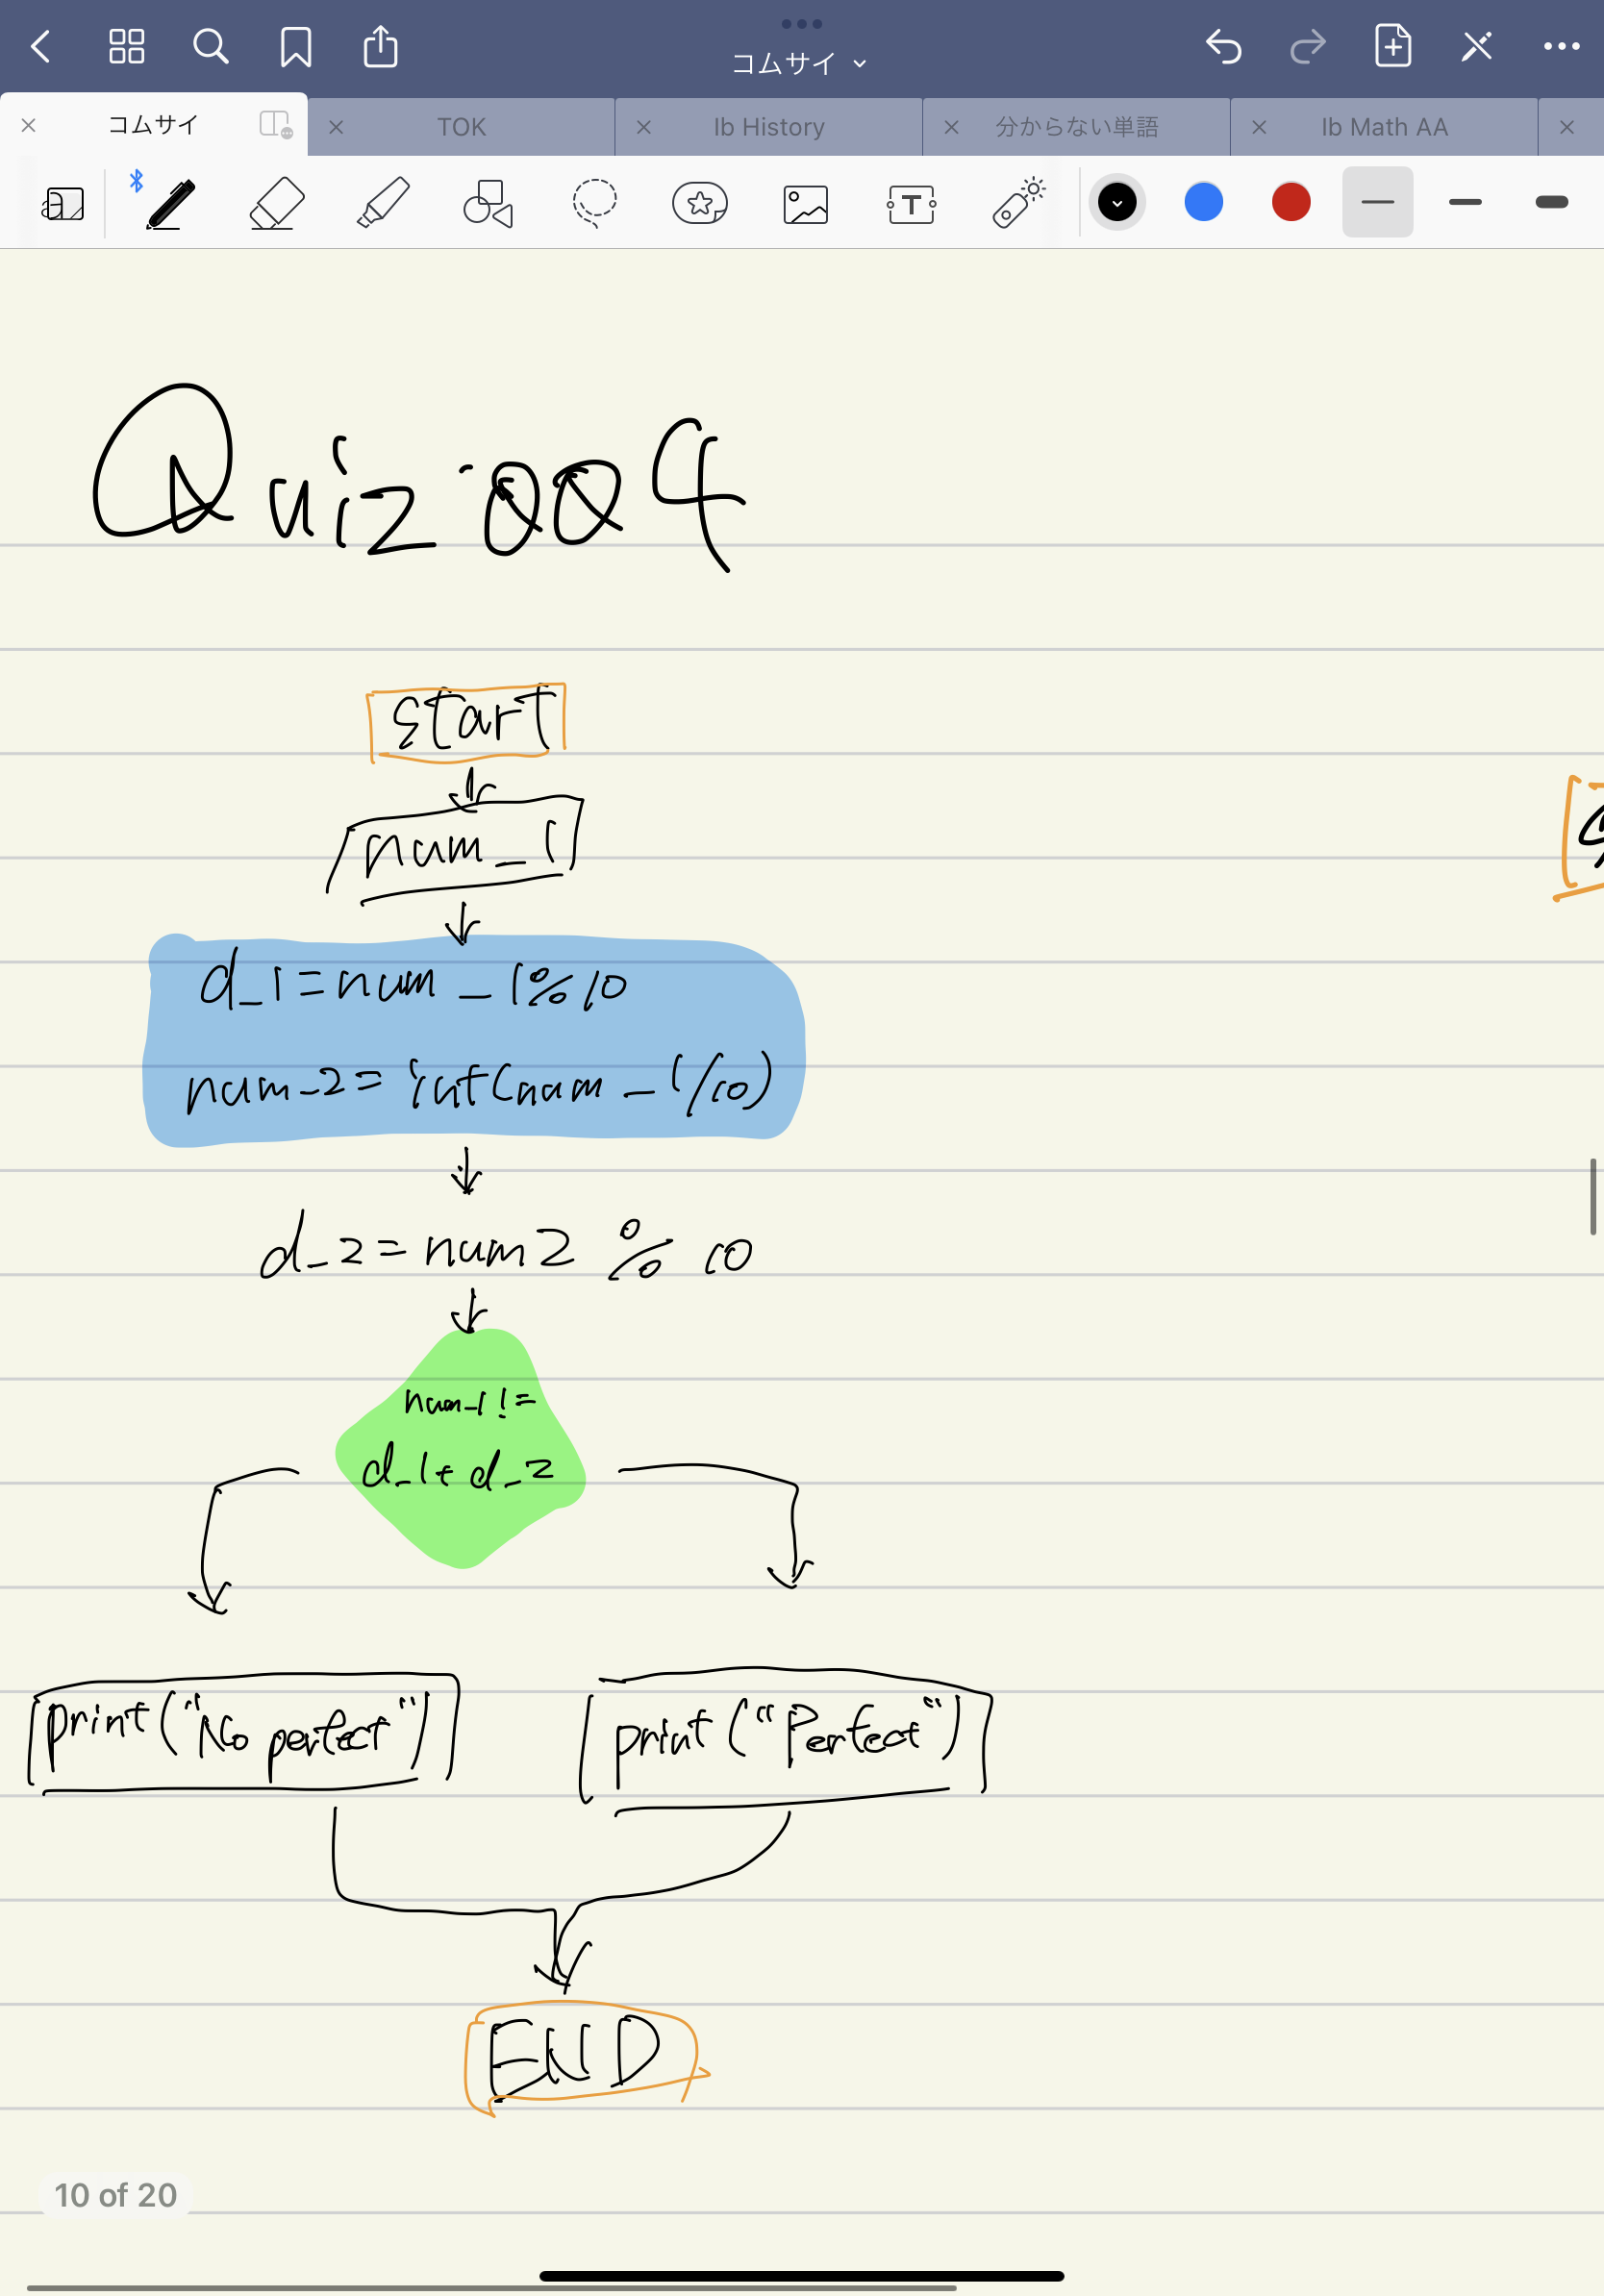 コムサイ
コムサイ TOK Ib History 分からない単語 Ib Math AA
Quiz 004
start
num_1
d_1=num_1%10
num_2=int(num_1/10)
d_2=num2 % 10
num_1!=
d_1+d_2
print("No perfect")
print("Perfect")
END
10 of 20